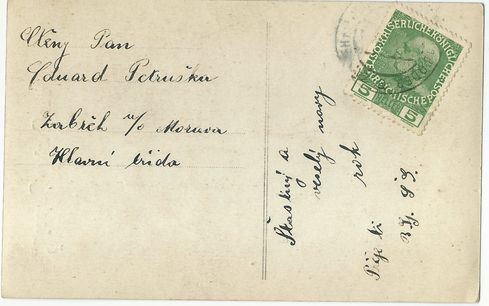 Ctěný Pan
Eduard Petruška
Zábřeh n/o Morava
Hlavní třída
Šťastný a
veselý nový
rok
Přeje ti
KAISERLICHE KÖNIGLICHE
ÖSTERREICHISCHE POST
5 5